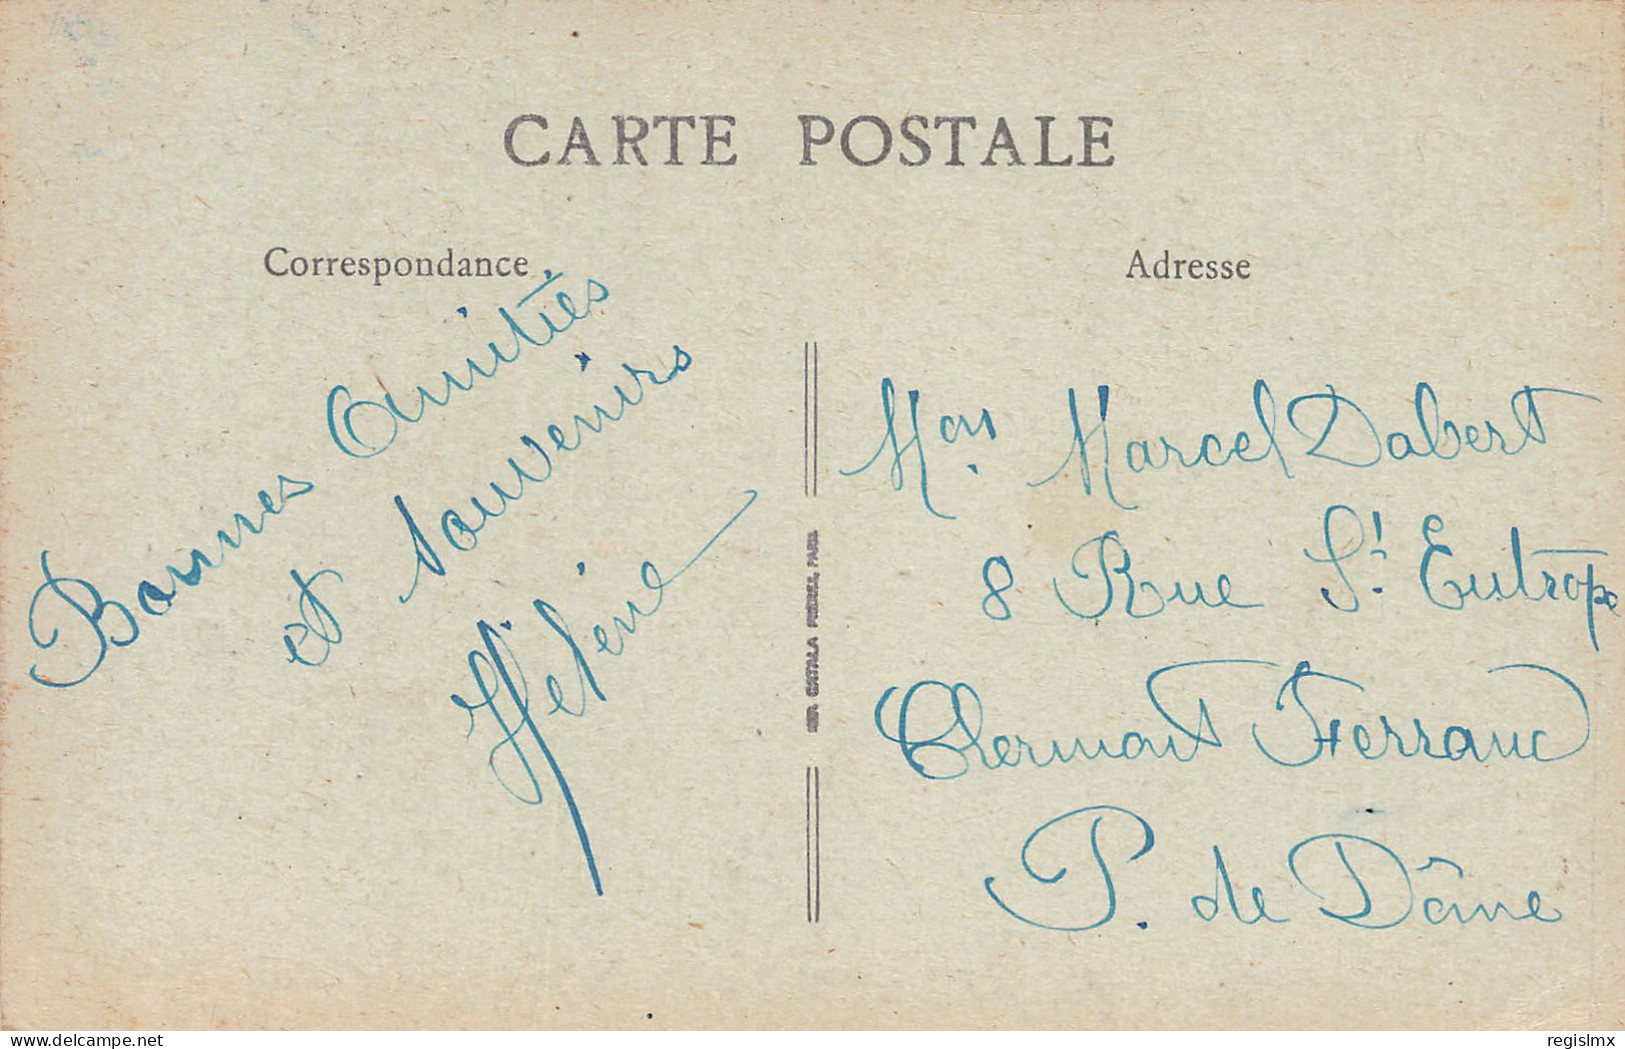 CARTE POSTALE
Correspondance
Adresse
Bonnes Amitiés
et souvenirs
Hélène
IMP. CATALA FRÈRES, PARIS
Mons. Marcel Dabert
8 Rue St. Eutrope
Clermont Ferrand
P. de Dôme
delcampe.net
regislmx